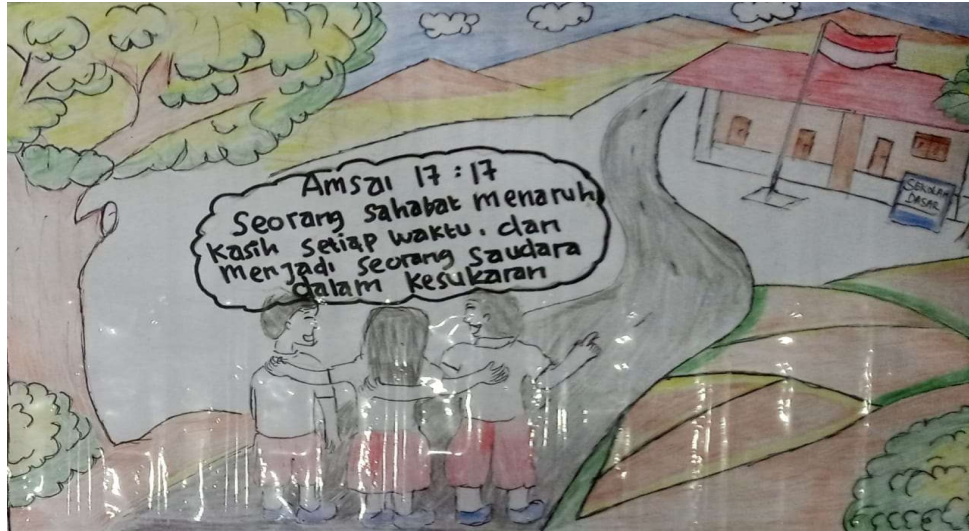 Amsal 17 : 17
Seorang sahabat menaruh
kasih setiap waktu, dan
menjadi seorang saudara
dalam kesukaran
SEKOLAH
DASAR